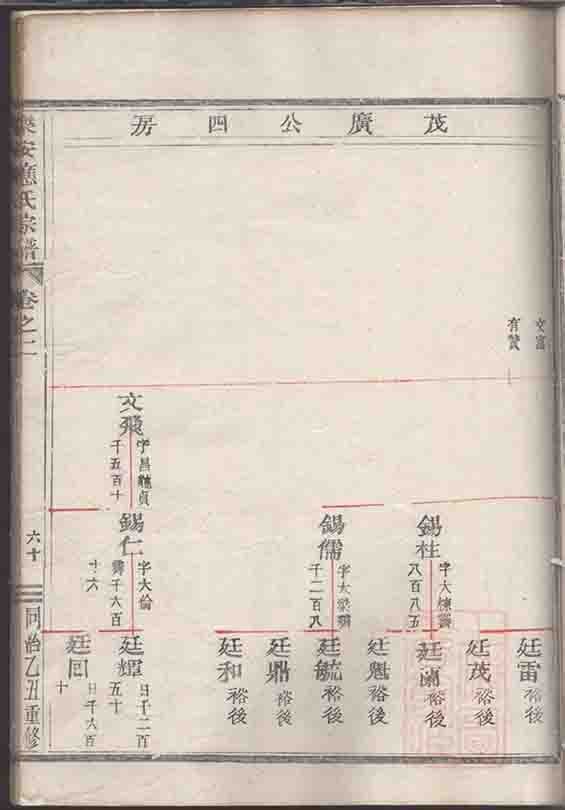 茂廣公四房
文富
有贊
文飛
字昌 貞
千五百十
錫柱
字大 
八百八五
錫儒
字大 
千二百八
錫仁
字大倫
千六百
十六
廷雷 裕後
廷茂 裕後
廷蘭 裕後
廷魁 裕後
廷毓 裕後
廷鼎 裕後
廷和 裕後
廷輝
日千二百
五十
廷回
日千六百
十
樂安應氏宗譜
卷之二
六十
同治乙丑重修